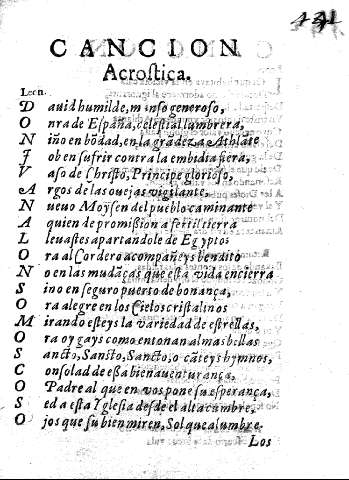 CANCION
Acrostica.
Leon.
D auid humilde, manso generoso,
O nra de España, celestial lumbrera,
N iño en bōdad, en la grādeza Athlāte
I ob en sufrir contra la embidia fiera,
V aso de Christo, Principe glorioso,
A rgos de las ouejas vigilante,
N ueuo Moysen del pueblo caminante
A quien de promission a fertil tierra
L leuastes apartandole de Egypto:
O ra al Cordero acompañeys bendito
N o en las mudāças que esta vida encierra
S ino en seguro puerto de bonança,
O ra alegre en los Cielos cristalinos
M irando esteys la variedad de estrellas,
O ra oygays como entonan almas bellas
S ancto, Sancto, Sancto, o cāteys hymnos,
C onsolad de essa bienauenturança,
O Padre al que en vos pone su esperança,
S ed a esta Iglesia desde el alta cumbre,
O jos que su bien miren, Sol que alumbre.
Los